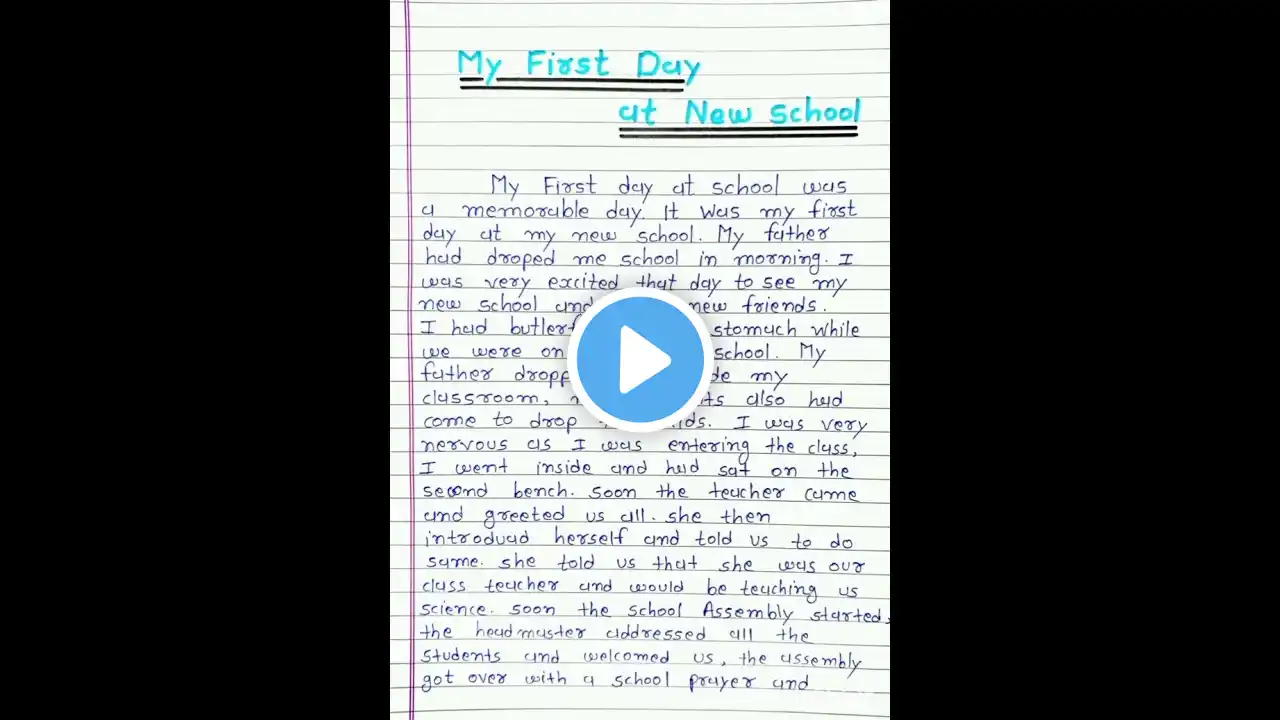 My First Day
at New School
My First day at school was
a memorable day. It was my first
day at my new school. My father
had droped me school in morning. I
was very excited that day to see my
new school and new friends.
I had stomach while
we were on school. My
father my
classroom, also had
come to drop I was very
nervous as I was entering the class,
I went inside and had sat on the
second bench. soon the teacher came
and greeted us all. she then
introduad herself and told us to do
same. she told us that she was our
class teacher and would be teaching us
science. soon the school Assembly started.
the headmaster addressed all the
students and welcomed us, the assembly
got over with a school prayer and